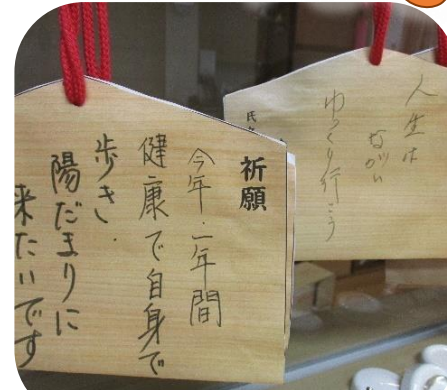 祈願
今年一年間
健康で自身で
歩き
陽だまりに
来たいです
人生は
ながい
ゆっくり行こう
氏